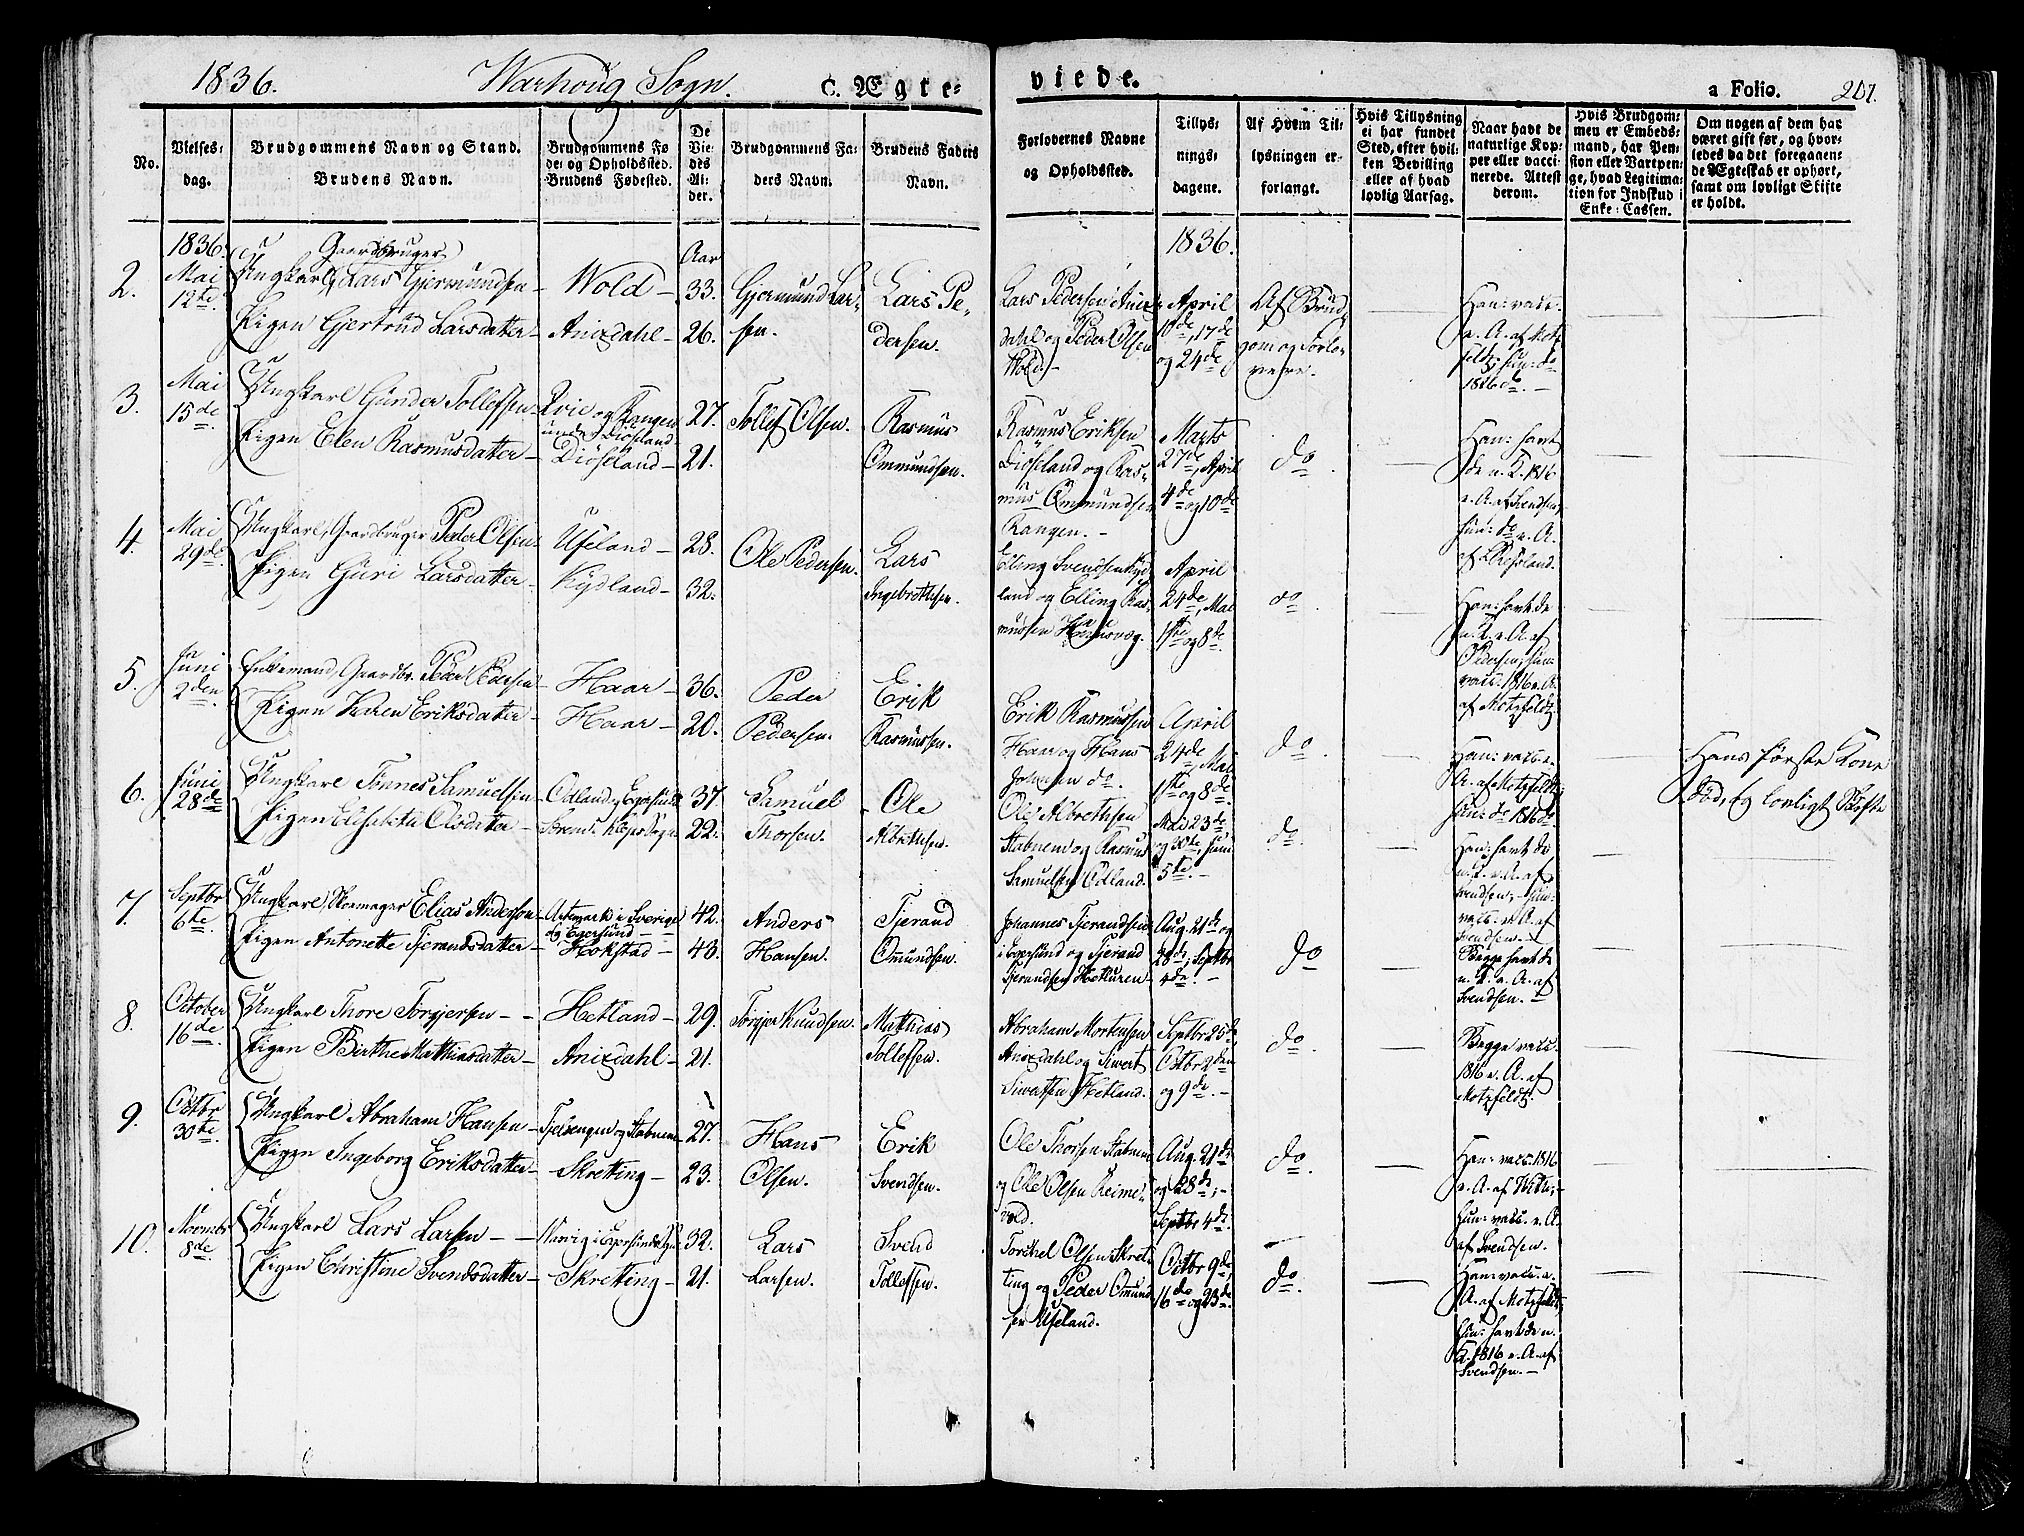 1836. Warhoug Sogn. C. Ægte-
viede. a Folio. 201.
No.
Vielses-
dag.
Brudgommens Navn og Stand.
Brudens Navn.
Brudgommens Fø
de- og Opholdssted.
Brudens Fødested.
De
Vie-
des
Al-
der.
Brudgommens Fa-
ders Navn.
Brudens Faders
Navn.
Forlovernes Navne
og Opholdssted.
Tillys-
nings-
dagene.
Af Hvem Til-
lysningen er-
forlangt.
Hvis Tillysning
ei har fundet
Sted, efter hvil-
ken Bevilling
eller af hvad
lovlig Aarsag.
Naar havt de
naturlige Kop-
per eller vacci-
nerede. Attest
derom.
Hvis Brudgom-
men er Embeds-
mand, har Pen-
sion eller Vartpen-
ge, hvad Legitima-
tion for Indskud i
Enke-Cassen.
Om nogen af dem har
været gift før, og hvor-
ledes da det foregaaen-
de Ægteskab er ophørt,
samt om lovligt Skifte
er holdt.
2.
1836.
Mai
12te.
Gaardbruger
Ungkarl, Lars Gjermundsen
Pigen Gjertrud Larsdatter
Wold
Anixdahl
Aar
33.
26.
Gjermund Lar-
sen.
Lars Pe-
dersen.
Lars Pedersen Anix-
dahl og Peder Olsen
Wold.
1836.
April
10de, 17de
og 24de
Af Brud-
gom og Forlo-
vere.
Han: vacc.
v. A. af Motz-
feldt; hun: do
1816 do.
3.
Mai
15de
Ungkarl Gunder Tollefsen
Pigen Elen Rasmusdatter
Qvie og Rangen
under Diösland
Diösland
27.
21.
Tollef Olsen.
Rasmus
Ommundsen.
Rasmus Eriksen
Diösland og Ras-
mus Ommundsen
Rangen.
Marts
27de, April
4de og 10de
do.
Han: havt
de n. K. 1816
v. A. af Svendsen,
hun: do v. A.
af
4.
Mai
29de
Ungkarl, Gaardbruger Peder Olsen
Pigen Guri Larsdatter
Ufsland
Kydland
28.
32.
Ole Pedersen.
Lars
Ingebrethsen.
Elling Svendsen Kyd-
land og Elling Ras-
mussen
April
24de, Mai
1ste og 8de.
do.
Han: havt de
n. K. v. A. af
Pedersen; hun:
vacc. 1816 v. A.
af Motzfeldt.
5.
Juni
2den
Enkemand, Gaardbr. Peder Pedersen
Pigen Karen Eriksdatter
Haar
Haar
36.
20.
Peder
Pedersen.
Erik
Rasmussen.
Erik Rasmussen
Haar og Hans
Johnsen do.
April
24de, Mai
1ste og 8de.
do.
Han: vacc. v.
A. af Motzfeldt;
hun: do 1816 do.
Hans første Kone
død, og lovligt Skifte
6.
Juni
28de
Ungkarl Tønnes Samuelsen
Pigen Elisabeta Olsdatter
Odland, Egersund
Klep Sogn
37.
22.
Samuel
Thorsen.
Ole
Albrethsen.
Ole Albrethsen
Stabnem og Rasmus
Samuelsen Odland.
Mai 23de,
og 30te, Juni
5te.
do.
Han: havt de
n. K. v. A. af
Svendsen; hun:
vacc. v. A. af
Svendsen.
7.
Septbr
6te.
Ungkarl, Skomager Elias Anderson
Pigen Antonette Tjerandsdatter
Artemark i Sverige
og Egersund
Hokstad
42.
43.
Anders
Hansen.
Tjerand
Omundsen.
Johannes Tjerandsen
i Egersund og Tjerand
Tjerandsen Hetluren.
Aug. 21de og
28de, Septbr
4de.
do
Begge havt de
n. K. v. A. af
Svendsen.
8.
October
16de
Ungkarl Thore Torgjersen
Pigen Birthe Mathiasdatter
Hetland
Anixdahl
29.
21.
Torgjer Knudsen.
Mathias
Tollefsen.
Abraham Mortensen
Anixdahl og Sivert
Sivertsen Hetland.
Septbr 25de,
Octbr 2den
og 9de.
do.
Begge vacc.
1816 v. A. af
Motzfeldt.
9.
Octbr
30te.
Ungkarl Abraham Hansen
Pigen Ingeborg Eriksdatter
og Stabnem
Skretting
27.
23.
Hans
Olsen.
Erik
Svendsen.
Ole Thorsen Stabnem
og Ole Olsen Reime-
vold.
Aug. 21de
og 28de,
Septbr 4de.
do.
Han: vacc. 1816
v. A. af
hun: vacc. v. A.
af Svendsen.
10.
Novembr
8de
Ungkarl Lars Larsen
Pigen Christine Svendsdatter
i Egersunds Sogn
Skretting
32.
21.
Lars
Larsen.
Svend
Tollefsen.
Torkel Olsen Skret-
ting og Peder Omund-
sen Ufsland.
Octbr 9de,
16de og 23de.
do.
Han: vacc. v.
A. af Motzfeldt;
hun: havt de n.
K. 1816 v. A. af
Svendsen.